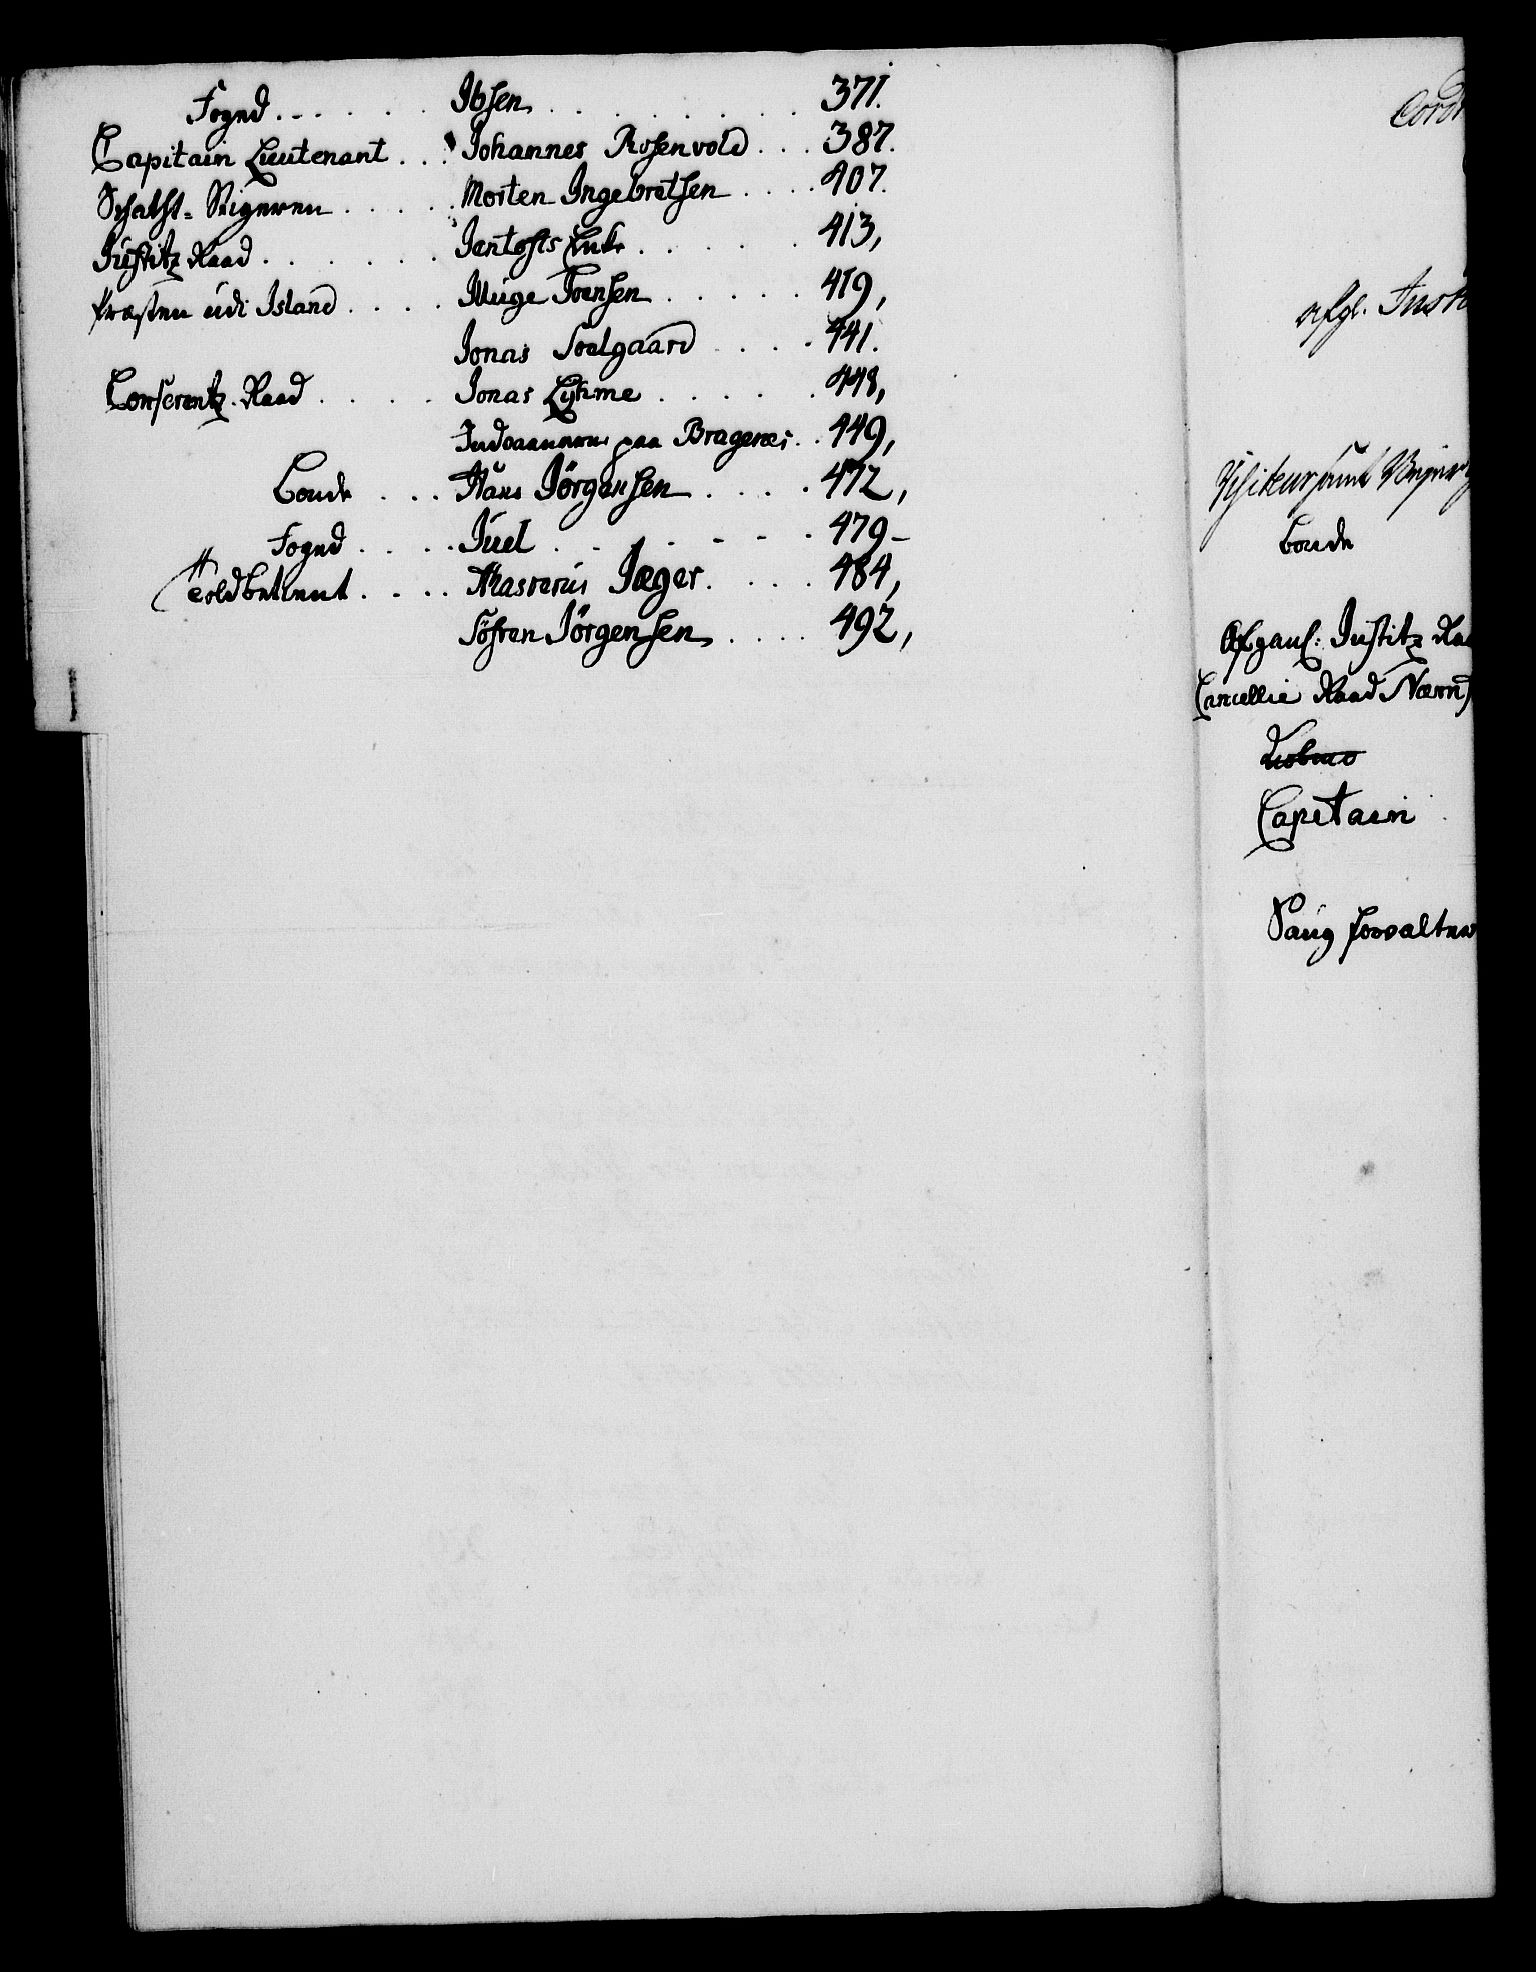 Foged . . . . . . Ibsen . . . . . . . . 371.
Capitain Lieutenant . . . Johannes Rosenvold . . . 387.
Schatht-Stigeren . . . . . Morten Ingebretsen . . . . 407.
Justitz Raad . . . . . . . Jantofts Enke . . . . . . 413,
Præsten udi Island . . . . Illuge Joensen . . . . . 419,
Jonas Soelgaard . . . . 441.
Conferentz Raad . . . . . Jonas Lyhme . . . . . . 448,
Indvaanerne paa Bragenæs . . 449,
Bonde . . . Hans Jørgensen . . . . 472,
Foged . . . . Juel . . . . . . . 479-
Toldbetient . . . . Jæger . . . . 484,
Söfren Jørgensen . . . . 492,
Cord
afgl. Just
Bonde
Afgangl: Justitz Ra
Cancellie Raad Nærn
Capitain
Saug forvalter